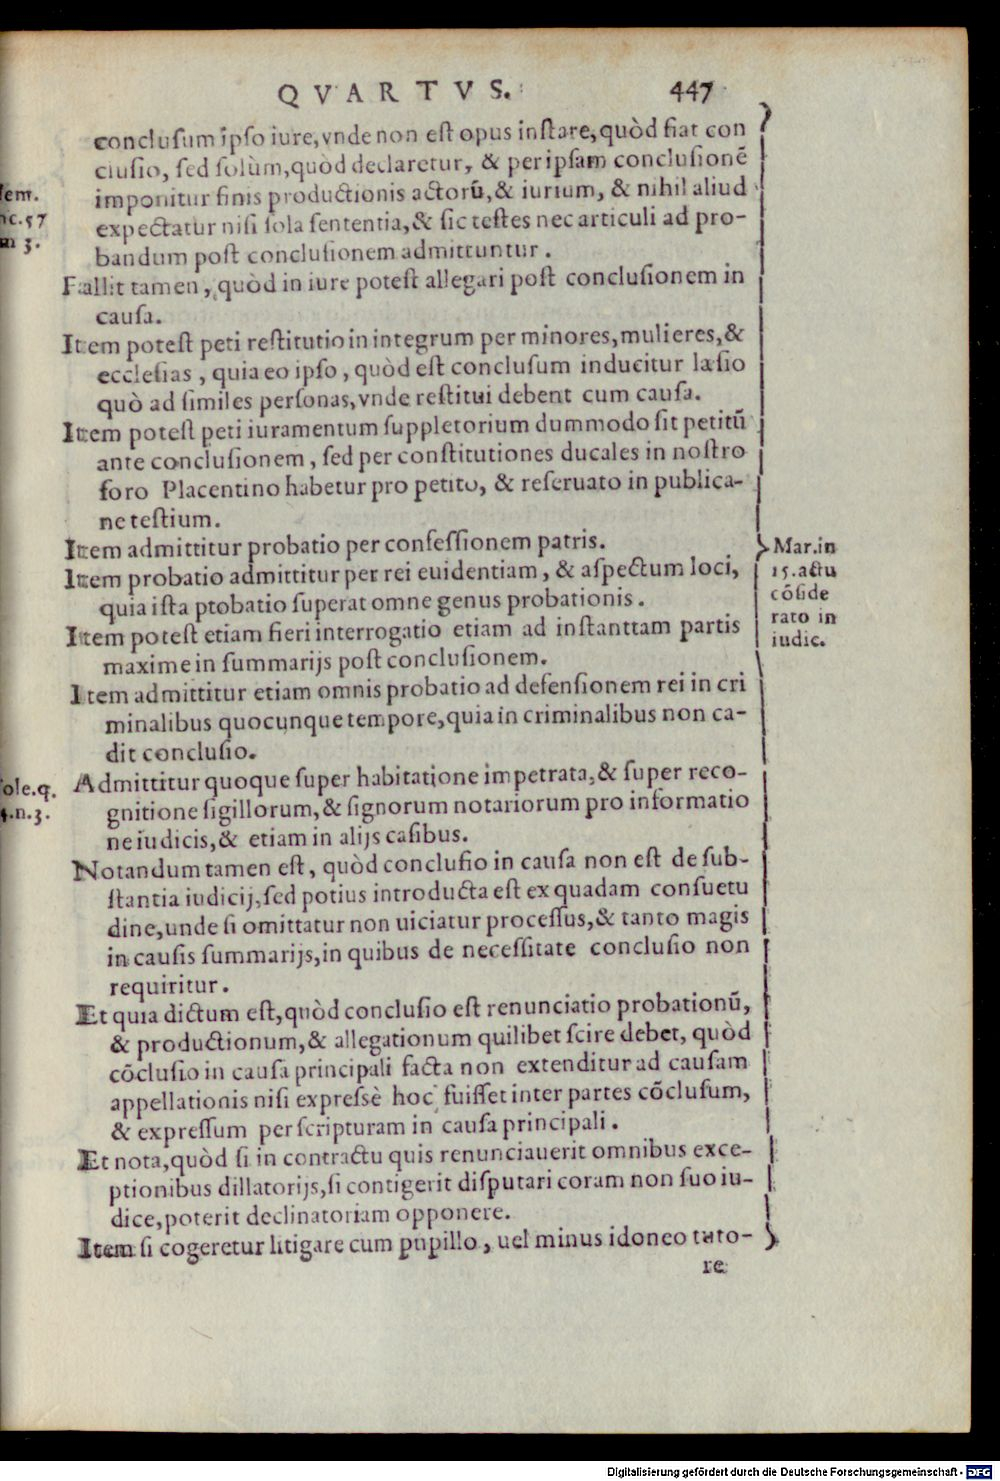 QVARTVS. 447
conclusum ipso iure, vnde non est opus instare, quòd fiat con
clusio, sed solùm, quòd declaretur, & per ipsam conclusionē
imponitur finis productionis actorū, & iurium, & nihil aliud
expectatur nisi sola sententia, & sic testes nec articuli ad pro-
bandum post conclusionem admittuntur.
Fallit tamen, quòd in iure potest allegari post conclusionem in
causa.
Item potest peti restitutio in integrum per minores, mulieres, &
ecclesias, quia eo ipso, quòd est conclusum inducitur læsio
quò ad similes personas, vnde restitui debent cum causa.
Item potest peti iuramentum suppletorium dummodo sit petitū
ante conclusionem, sed per constitutiones ducales in nostro
foro Placentino habetur pro petito, & reseruato in publica-
ne testium.
Item admittitur probatio per confessionem patris.
Item probatio admittitur per rei euidentiam, & aspectum loci,
quia ista ptobatio superat omne genus probationis.
Item potest etiam fieri interrogatio etiam ad instanttam partis
maxime in summarijs post conclusionem.
Item admittitur etiam omnis probatio ad defensionem rei in cri
minalibus quocunque tempore, quia in criminalibus non ca-
dit conclusio.
Admittitur quoque super habitatione impetrata, & super reco-
gnitione sigillorum, & signorum notariorum pro informatio
ne iudicis, & etiam in alijs casibus.
Notandum tamen est, quòd conclusio in causa non est de sub-
stantia iudicij, sed potius introducta est ex quadam consuetu
dine, unde si omittatur non uiciatur processus, & tanto magis
in causis summarijs, in quibus de necessitate conclusio non
requiritur.
Et quia dictum est, quòd conclusio est renunciatio probationū,
& productionum, & allegationum quilibet scire debet, quòd
cōclusio in causa principali facta non extenditur ad causam
appellationis nisi expressè hoc fuisset inter partes cōclusum,
& expressum per scripturam in causa principali.
Et nota, quòd si in contractu quis renunciauerit omnibus exce-
ptionibus dillatorijs, si contigerit disputari coram non suo iu-
dice, poterit declinatoriam opponere.
Item si cogeretur litigare cum pupillo, uel minus idoneo tuto-
re
Mar. in
15. actu
cōside
rato in
iudic.
c. 57
3.
ole. q.
.n. 3.
Digitalisierung gefördert durch die Deutsche Forschungsgemeinschaft - DFG